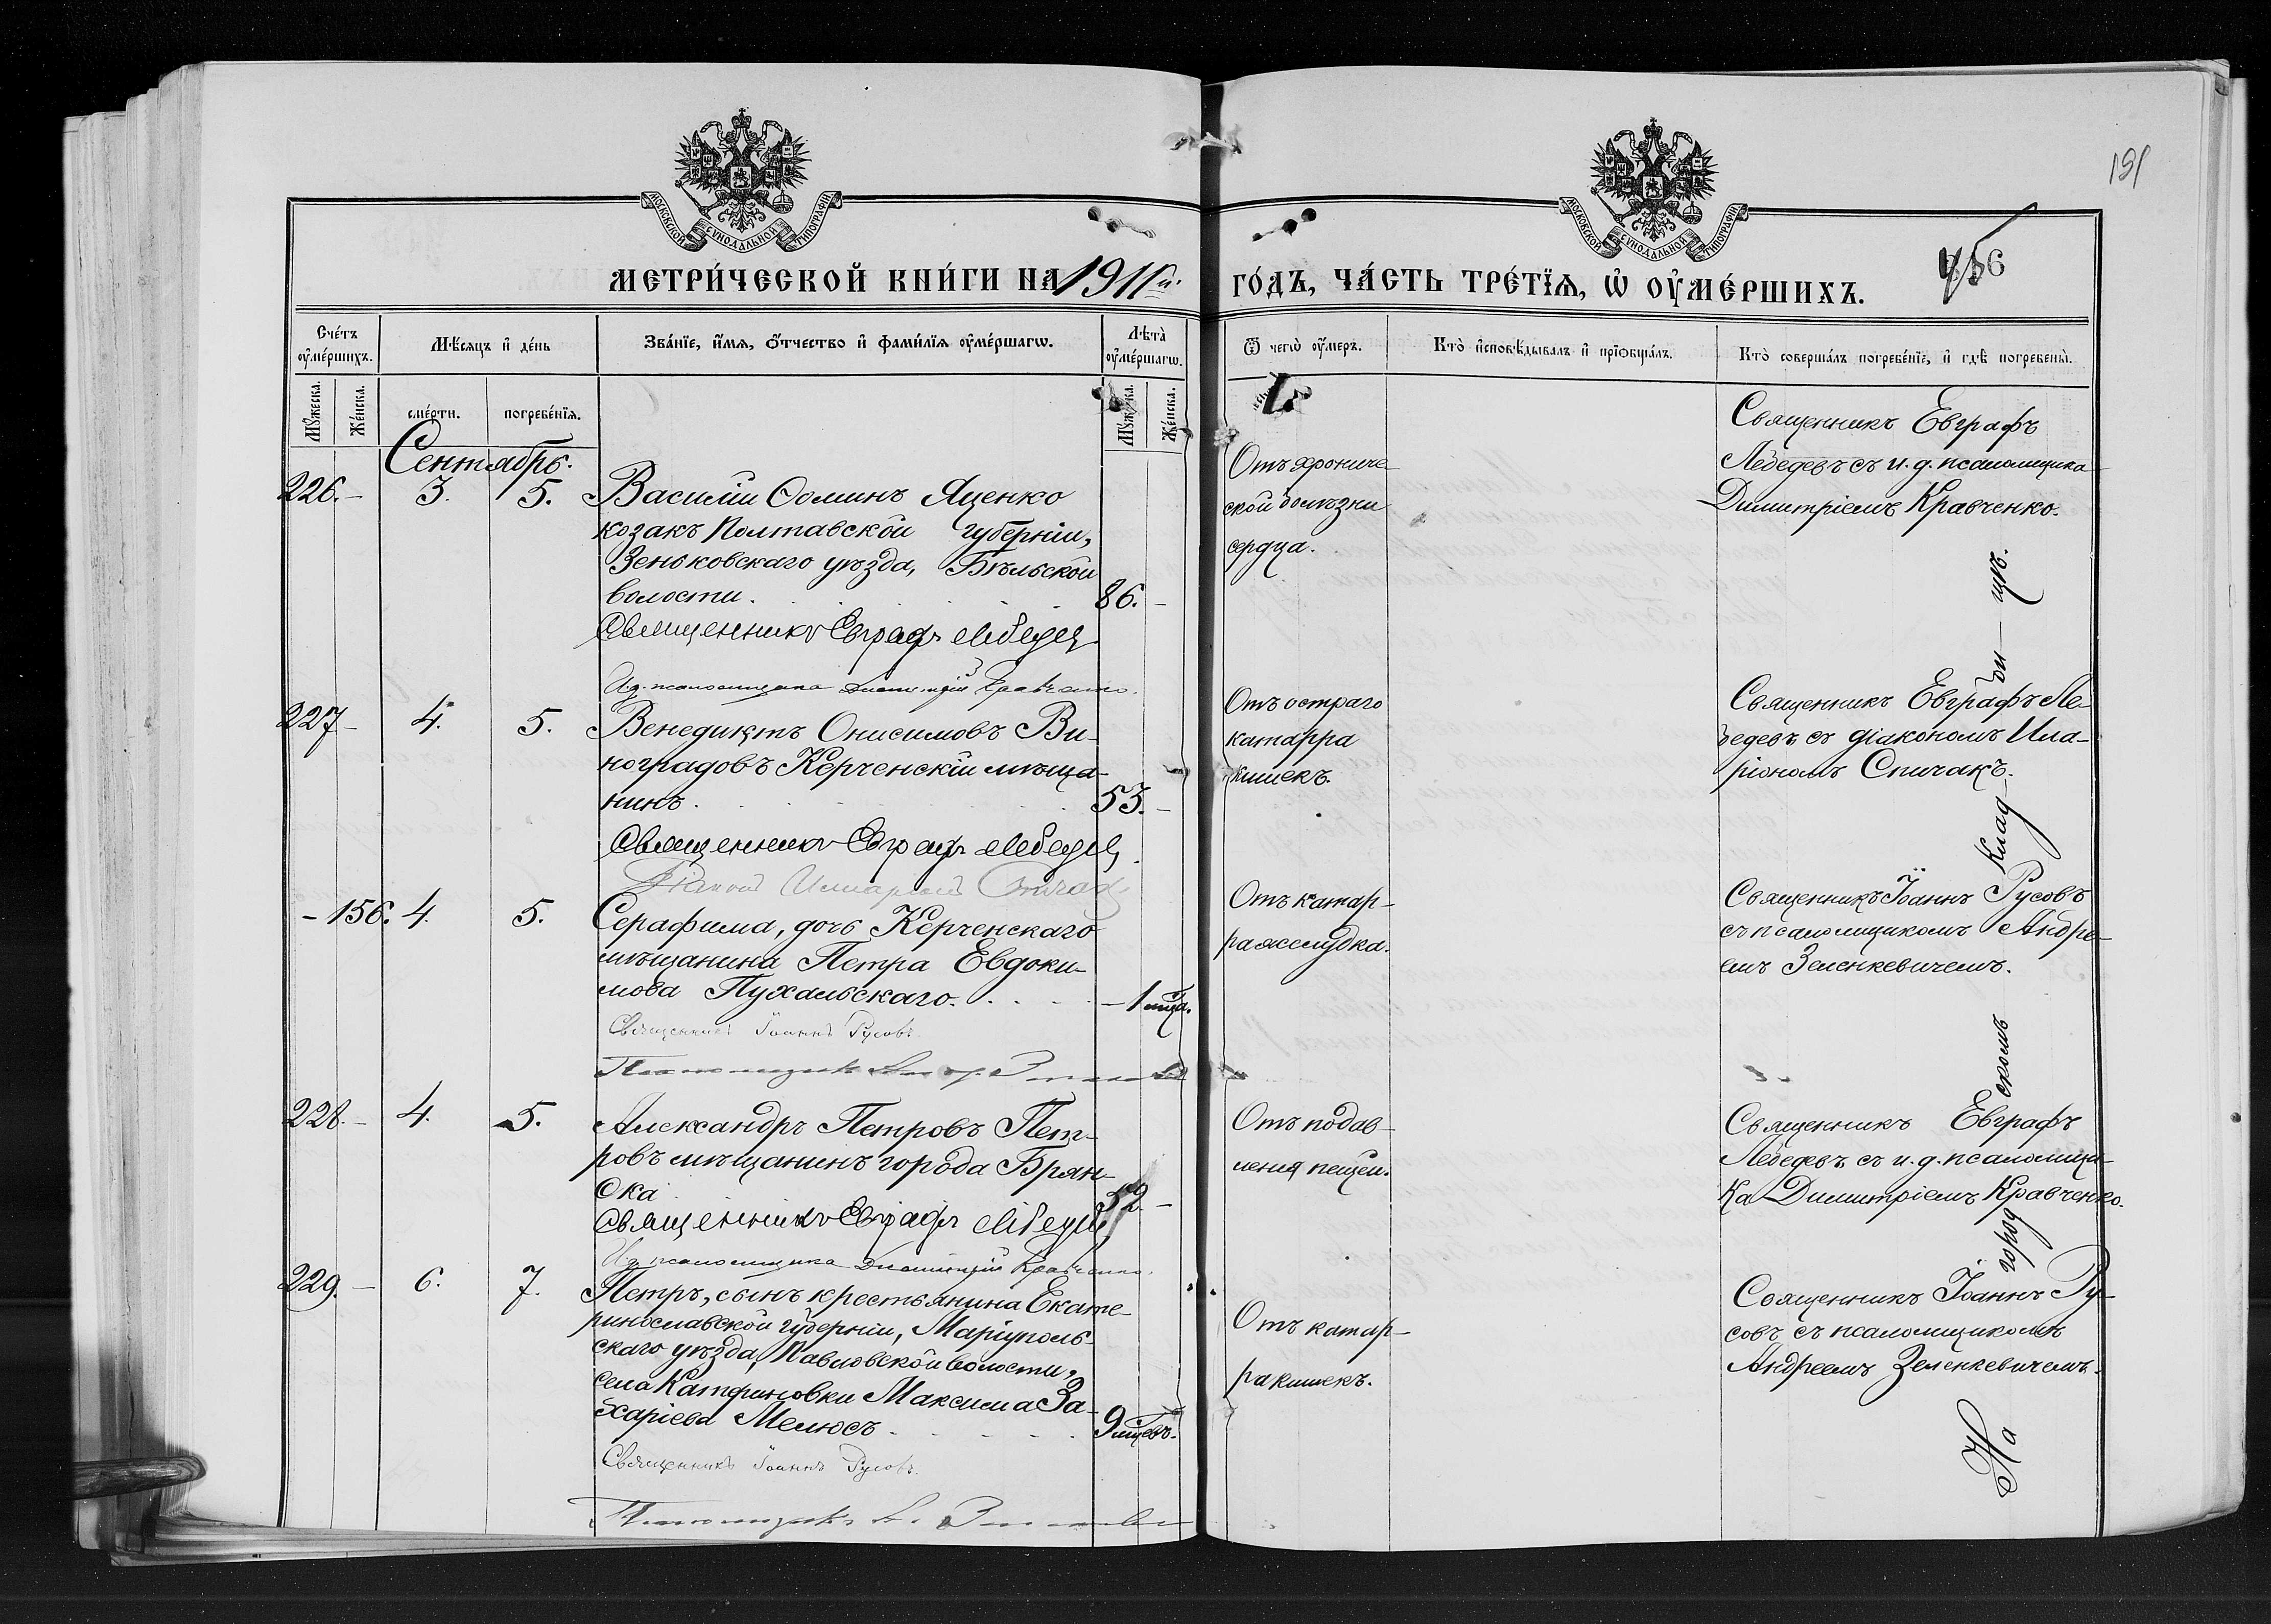 191
456
МОСКОВСКОЙ СѴНОДАЛЬНОЙ ТИПОГРАФІИ
МОСКОВСКОЙ СѴНОДАЛЬНОЙ ТИПОГРАФІИ
МЕТРИ́ЧЕСКОЙ КНИ́ГИ НА 1911й. ГО́ДЪ, ЧА́СТЬ ТРЕ́ТЇѦ, Ѡ҆ ОУ҆МЕ́РШИХЪ.
Сче́тъ оу҆ме́ршихъ.
Мѣ́сяцъ и҆ де́нь
Зва́нїе, и҆́мѧ, ѻ҆́тчество и҆ фами́лїѧ оу҆ме́ршагѡ.
Лѣта̀ оу҆ме́ршагѡ.
Ѿ чегѡ̀ оу҆́меръ.
Кто̀ и҆сповѣ́дывалъ и҆ прїѡбща́лъ.
Кто̀ соверша́лъ погребе́нїе, и҆ гдѣ̀ погребены̀.
Мꙋ́жеска.
Же́нска.
сме́рти.
погребе́нїѧ.
Мꙋ́жеска.
Же́нска.
Сентябрь.
226. – 3. 5. Василій Ѳоминъ Яценко
козакъ Полтавской губерніи,
Зеньковскаго уѣзда, Бѣльской
волости. 86. –
Священникъ Евграфъ Лебедев
И. д. псаломщика Димитрій Кравченко.
Отъ хрониче
ской болѣзни
сердца.
Священникъ Евграфъ
Лебедевъ съ и. д. псаломщика
Димитріемъ Кравченко.
227 – 4. 5. Венедиктъ Онисимовъ Ви-
ноградовъ Керченскій мѣща-
нинъ. 53. –
Священникъ Евграфъ Лебедев
Діаконъ Иларіонъ Спичакъ
Отъ остраго
катарра
кишекъ.
Священникъ Евграфъ Ле-
бедевъ съ діакономъ Ила-
ріономъ Спичакъ.
– 156. 4. 5. Серафима, дочь Керченскаго
мѣщанина Петра Евдоки-
мова Пухальскаго. – 1 мца.
Священникъ Іоаннъ Русовъ.
Псаломщикъ
Отъ катар-
ра желудка.
Священникъ Іоаннъ Русовъ
съ псаломщикомъ Андре-
емъ Зеленкевичемъ.
228. – 4. 5. Александръ Петровъ Пет-
ровъ мѣщанинъ города Брян-
ска 52. –
Священникъ Евграфъ Лебедев
И. д. псаломщика Димитрій Кравченко.
Отъ подав-
ленія пещеи.
Священникъ Евграфъ
Лебедевъ съ и. д. псаломщи-
ка Димитріемъ Кравченко.
229. – 6. 7. Петръ, сынъ крестьянина Екате-
ринославской губерніи, Маріуполь-
скаго уѣзда, Павловской волости,
села Катериновки Максима За-
харіева Мелюсъ. 9 мцевъ.
Священникъ Іоаннъ Русовъ.
Псаломщикъ
Отъ катар-
ра кишекъ.
Священникъ Іоаннъ Ру-
совъ съ псаломщикомъ
Андреемъ Зеленкевичемъ.
На город скомъ клад бищѣ.